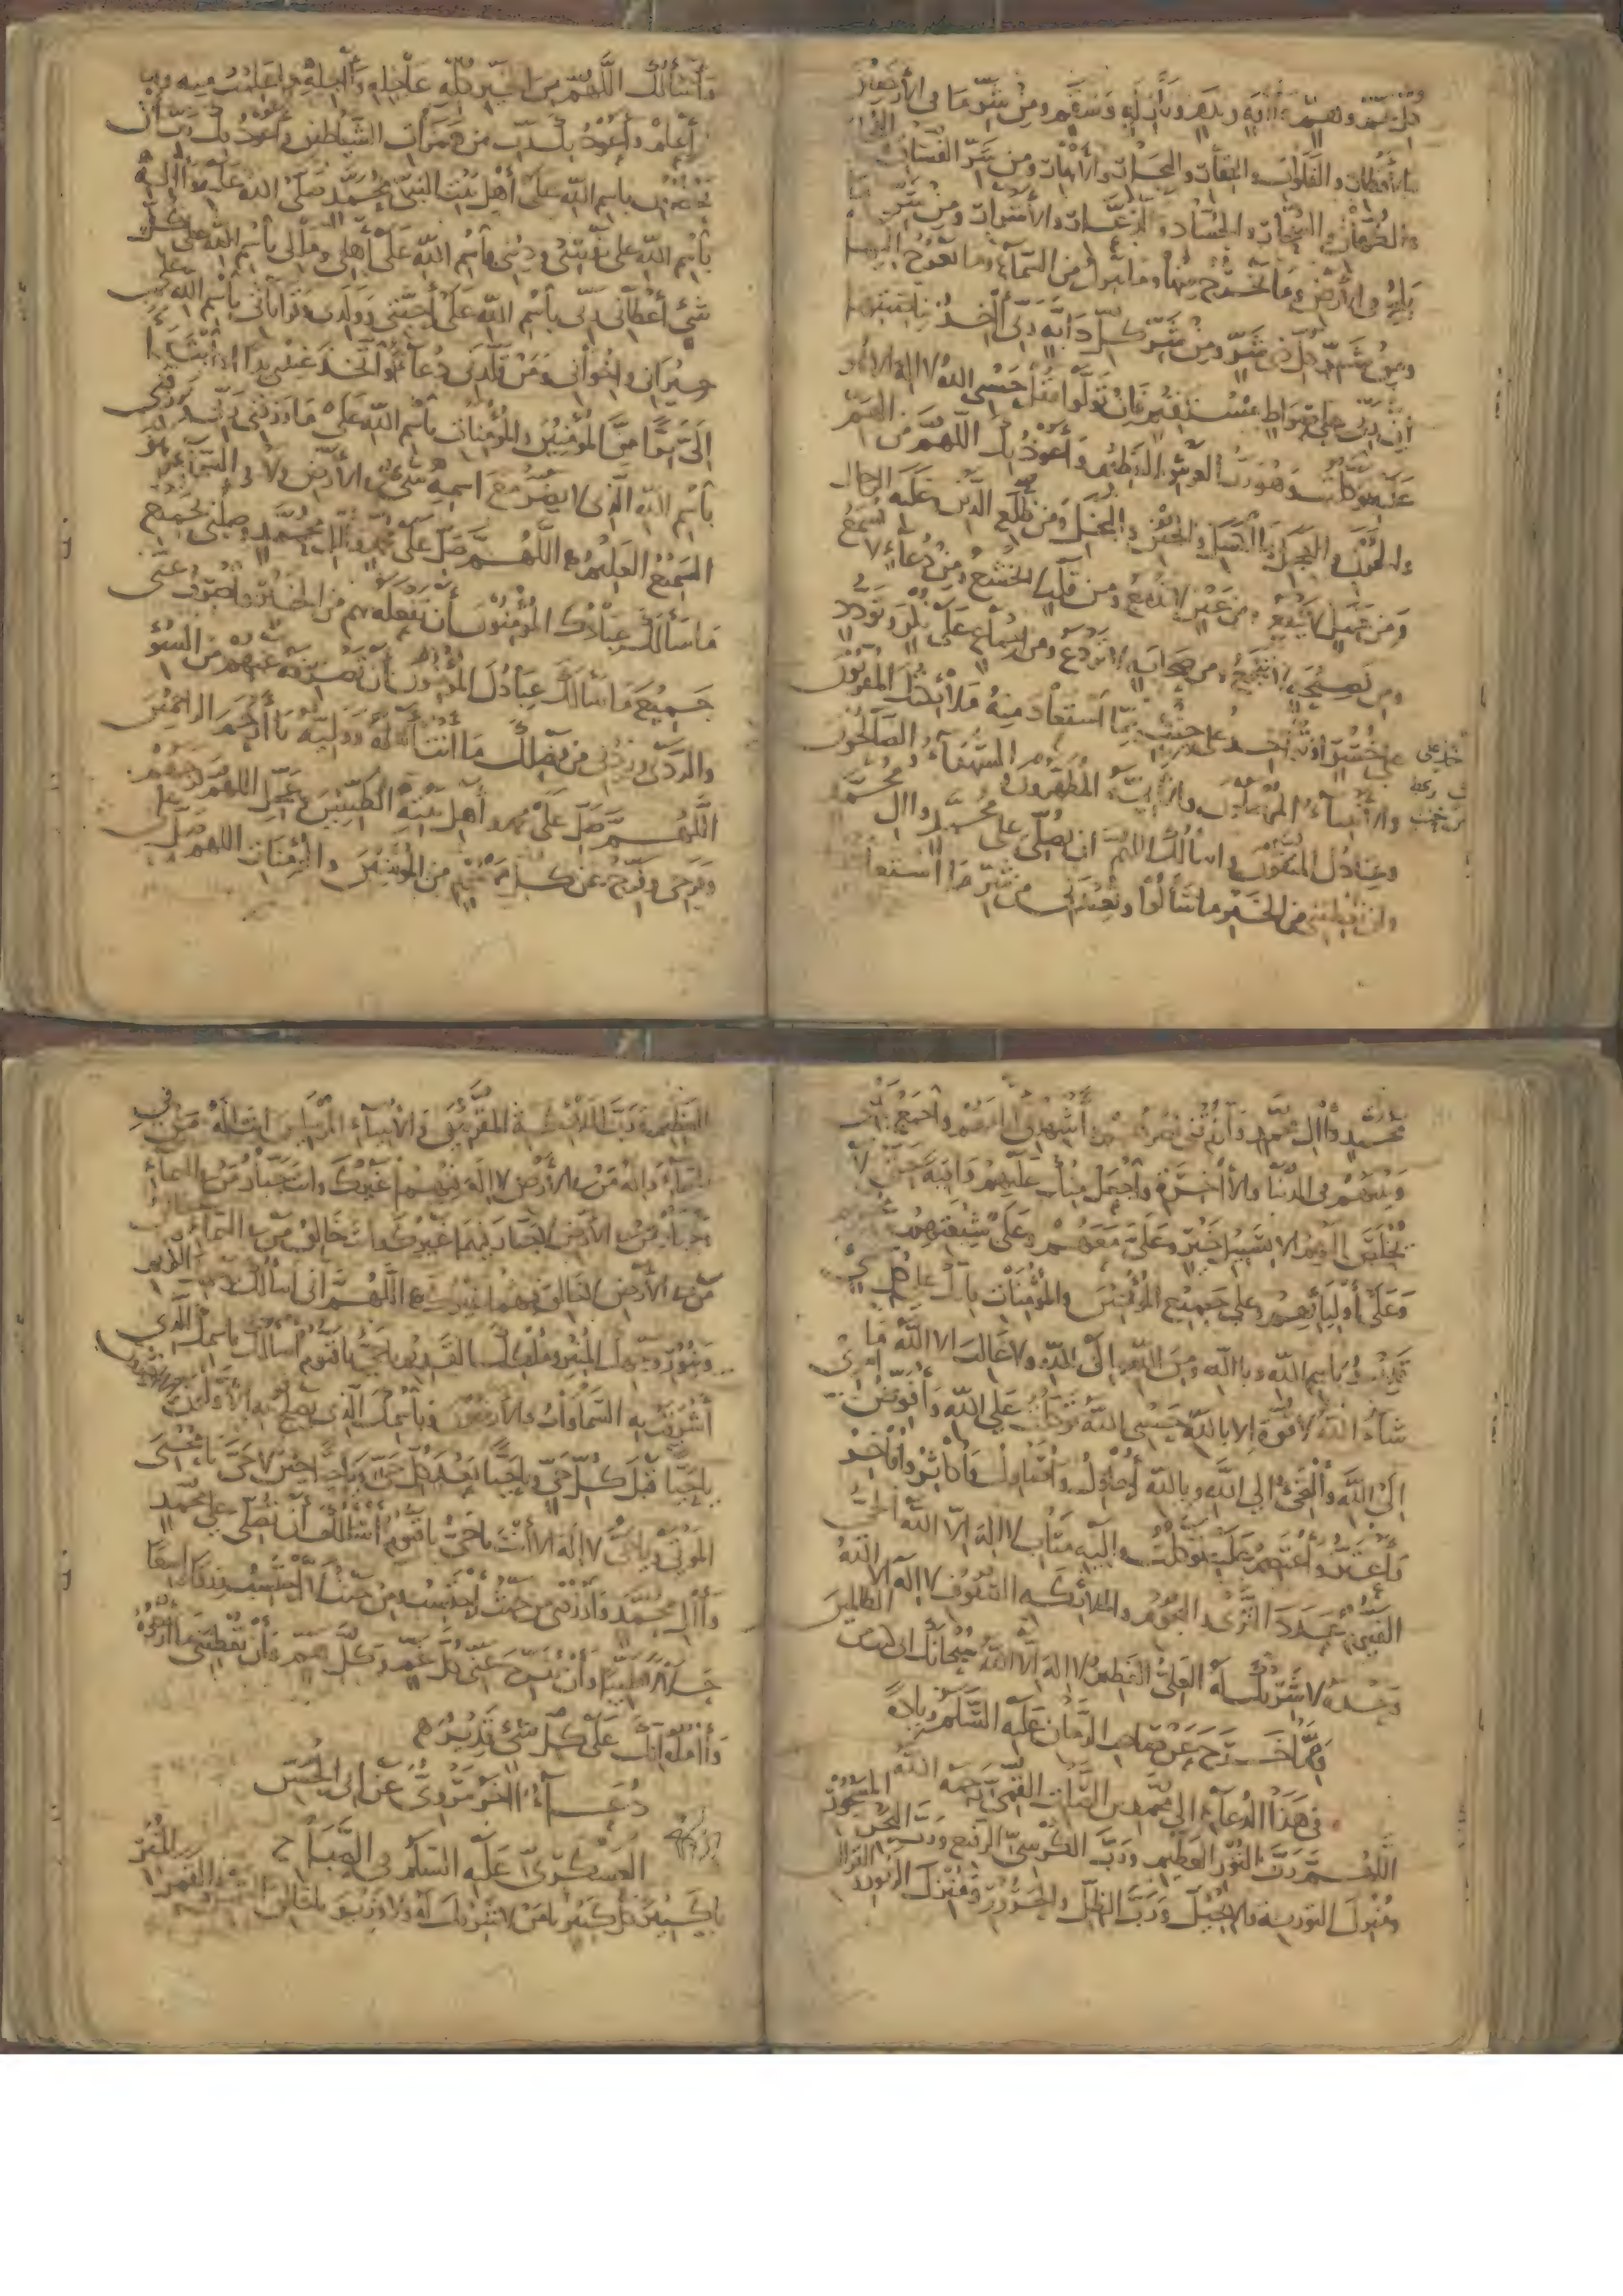 كل هم وغم وآفة وندم ونازلة وسقم ومن شر ما في الأرض
والأقطار والفلوات والقفار والبحار والأنهار ومن شر الفساق
والكهان والسحار والحساد والذعار والأشرار ومن شر ما
يلج في الأرض وما يخرج منها وما ينزل من السماء وما يعرج إليها
ومن شر كل ذي شر ومن شر كل دابة ربي آخذ بناصيتها
إن ربي على صراط مستقيم فإن تولوا فقل حسبي الله لا إله إلا هو
عليه توكلت وهو رب العرش العظيم وأعوذ بك اللهم من الهم
والحزن والعجز والكسل والجبن والبخل ومن ضلع الدين وغلبة الرجال
ومن عمل لا ينفع ومن عين لا تدمع ومن قلب لا يخشع ومن دعاء لا يسمع
ومن نصيحة لا تنجع ومن صحابة لا تردع ومن اجتماع على نكر وتودد
على خسر أو تؤاخذ على خبث ومما استعاذ منه ملائكتك المقربون
والأنبياء المرسلون والأئمة المطهرون والشهداء والصالحون
وعبادك المتقون وأسألك اللهم أن تصلي على محمد وآل محمد
وأن تعطيني من الخير ما سألوا وتعيذني من شر ما استعاذوا
وأسألك اللهم من الخير كله عاجله وآجله ما علمت منه وما
أعلم وأعوذ بك رب من همزات الشياطين وأعوذ بك رب أن
يحضرون بسم الله على أهل بيت النبي محمد صلى الله عليه وآله
بسم الله على نفسي وديني بسم الله على أهلي ومالي بسم الله على كل
شيء أعطاني ربي بسم الله على أحبتي وولدي وقراباتي بسم الله على
جيراني وإخواني ومن قلدني دعاء أو اتخذ عندي يدا أو أسدى
إلي برا من المؤمنين والمؤمنات بسم الله على ما رزقني ربي ويرزقني
بسم الله الذي لا يضر مع اسمه شيء في الأرض ولا في السماء وهو
السميع العليم اللهم صل على محمد وآل محمد وصلني بجميع
ما سألك عبادك المؤمنون أن تصلهم به من الخير واصرف عني
جميع ما سألك عبادك المؤمنون أن تصرفه عنهم من السوء
والردى وزدني من فضلك ما أنت أهله ووليه يا أرحم الراحمين
اللهم صل على محمد وأهل بيته الطيبين وعجل اللهم فرجهم
وفرجي وفرج عن كل مهموم من المؤمنين والمؤمنات اللهم صل على
محمد وآل محمد وارزقني نصرهم وأشهدني أيامهم واجمع بيني
وبينهم في الدنيا والآخرة واجعل منك عليهم واقية حتى لا
يخلص إليهم إلا بسبيل خير وعلي معهم وعلى شيعتهم
وعلى أوليائهم وعلى جميع المؤمنين والمؤمنات فإنك على كل شيء
قدير بسم الله وبالله ومن الله وإلى الله ولا غالب إلا الله ما
شاء الله لا قوة إلا بالله حسبي الله توكلت على الله وأفوض أمري
إلى الله وألتجئ إلى الله وبالله أحاول وأصاول وأكاثر وأفاخر
وأعتز وأعتصم عليه توكلت وإليه متاب لا إله إلا الله الحي
القيوم عدد الثرى والنجوم والملائكة الصفوف لا إله إلا الله
وحده لا شريك له العلي العظيم لا إله إلا الله سبحانك إني كنت من الظالمين
ومما خرج عن صاحب الزمان عليه السلم زيادة
في هذا الدعاء إلى محمد بن الصلت القمي رحمه الله
اللهم رب النور العظيم ورب الكرسي الرفيع ورب البحر المسجور
ومنزل التورية والإنجيل ورب الظل والحرور ومنزل الزبور والقرآن
العظيم ورب الملائكة المقربين والأنبياء المرسلين أنت إله من في
السماء وإله من في الأرض لا إله فيهما غيرك وأنت جبار من في السماء
وجبار من في الأرض لا جبار فيهما غيرك وأنت خالق من في السماء وخالق
من في الأرض لا خالق فيهما غيرك اللهم إني أسألك بوجهك الكريم
وبنور وجهك المنير وملكك القديم يا حي يا قيوم أسألك باسمك الذي
أشرقت به السماوات والأرضون وباسمك الذي يصلح به الأولون والآخرون
يا حيا قبل كل حي ويا حيا بعد كل حي ويا حيا حين لا حي يا محيي
الموتى ويا حي لا إله إلا أنت يا حي يا قيوم أسألك أن تصلي على محمد
وآل محمد وارزقني من حيث أحتسب ومن حيث لا أحتسب رزقا واسعا
حلالا طيبا وأن تفرج عني كل غم وكل هم وأن تعطيني ما أرجوه
وآمله إنك على كل شيء قدير
دعاء آخر مروي عن أبي الحسن
العسكري عليه السلم في الصباح
يا كبير كل كبير يا من لا شريك له ولا وزير يا خالق الشمس والقمر المنير